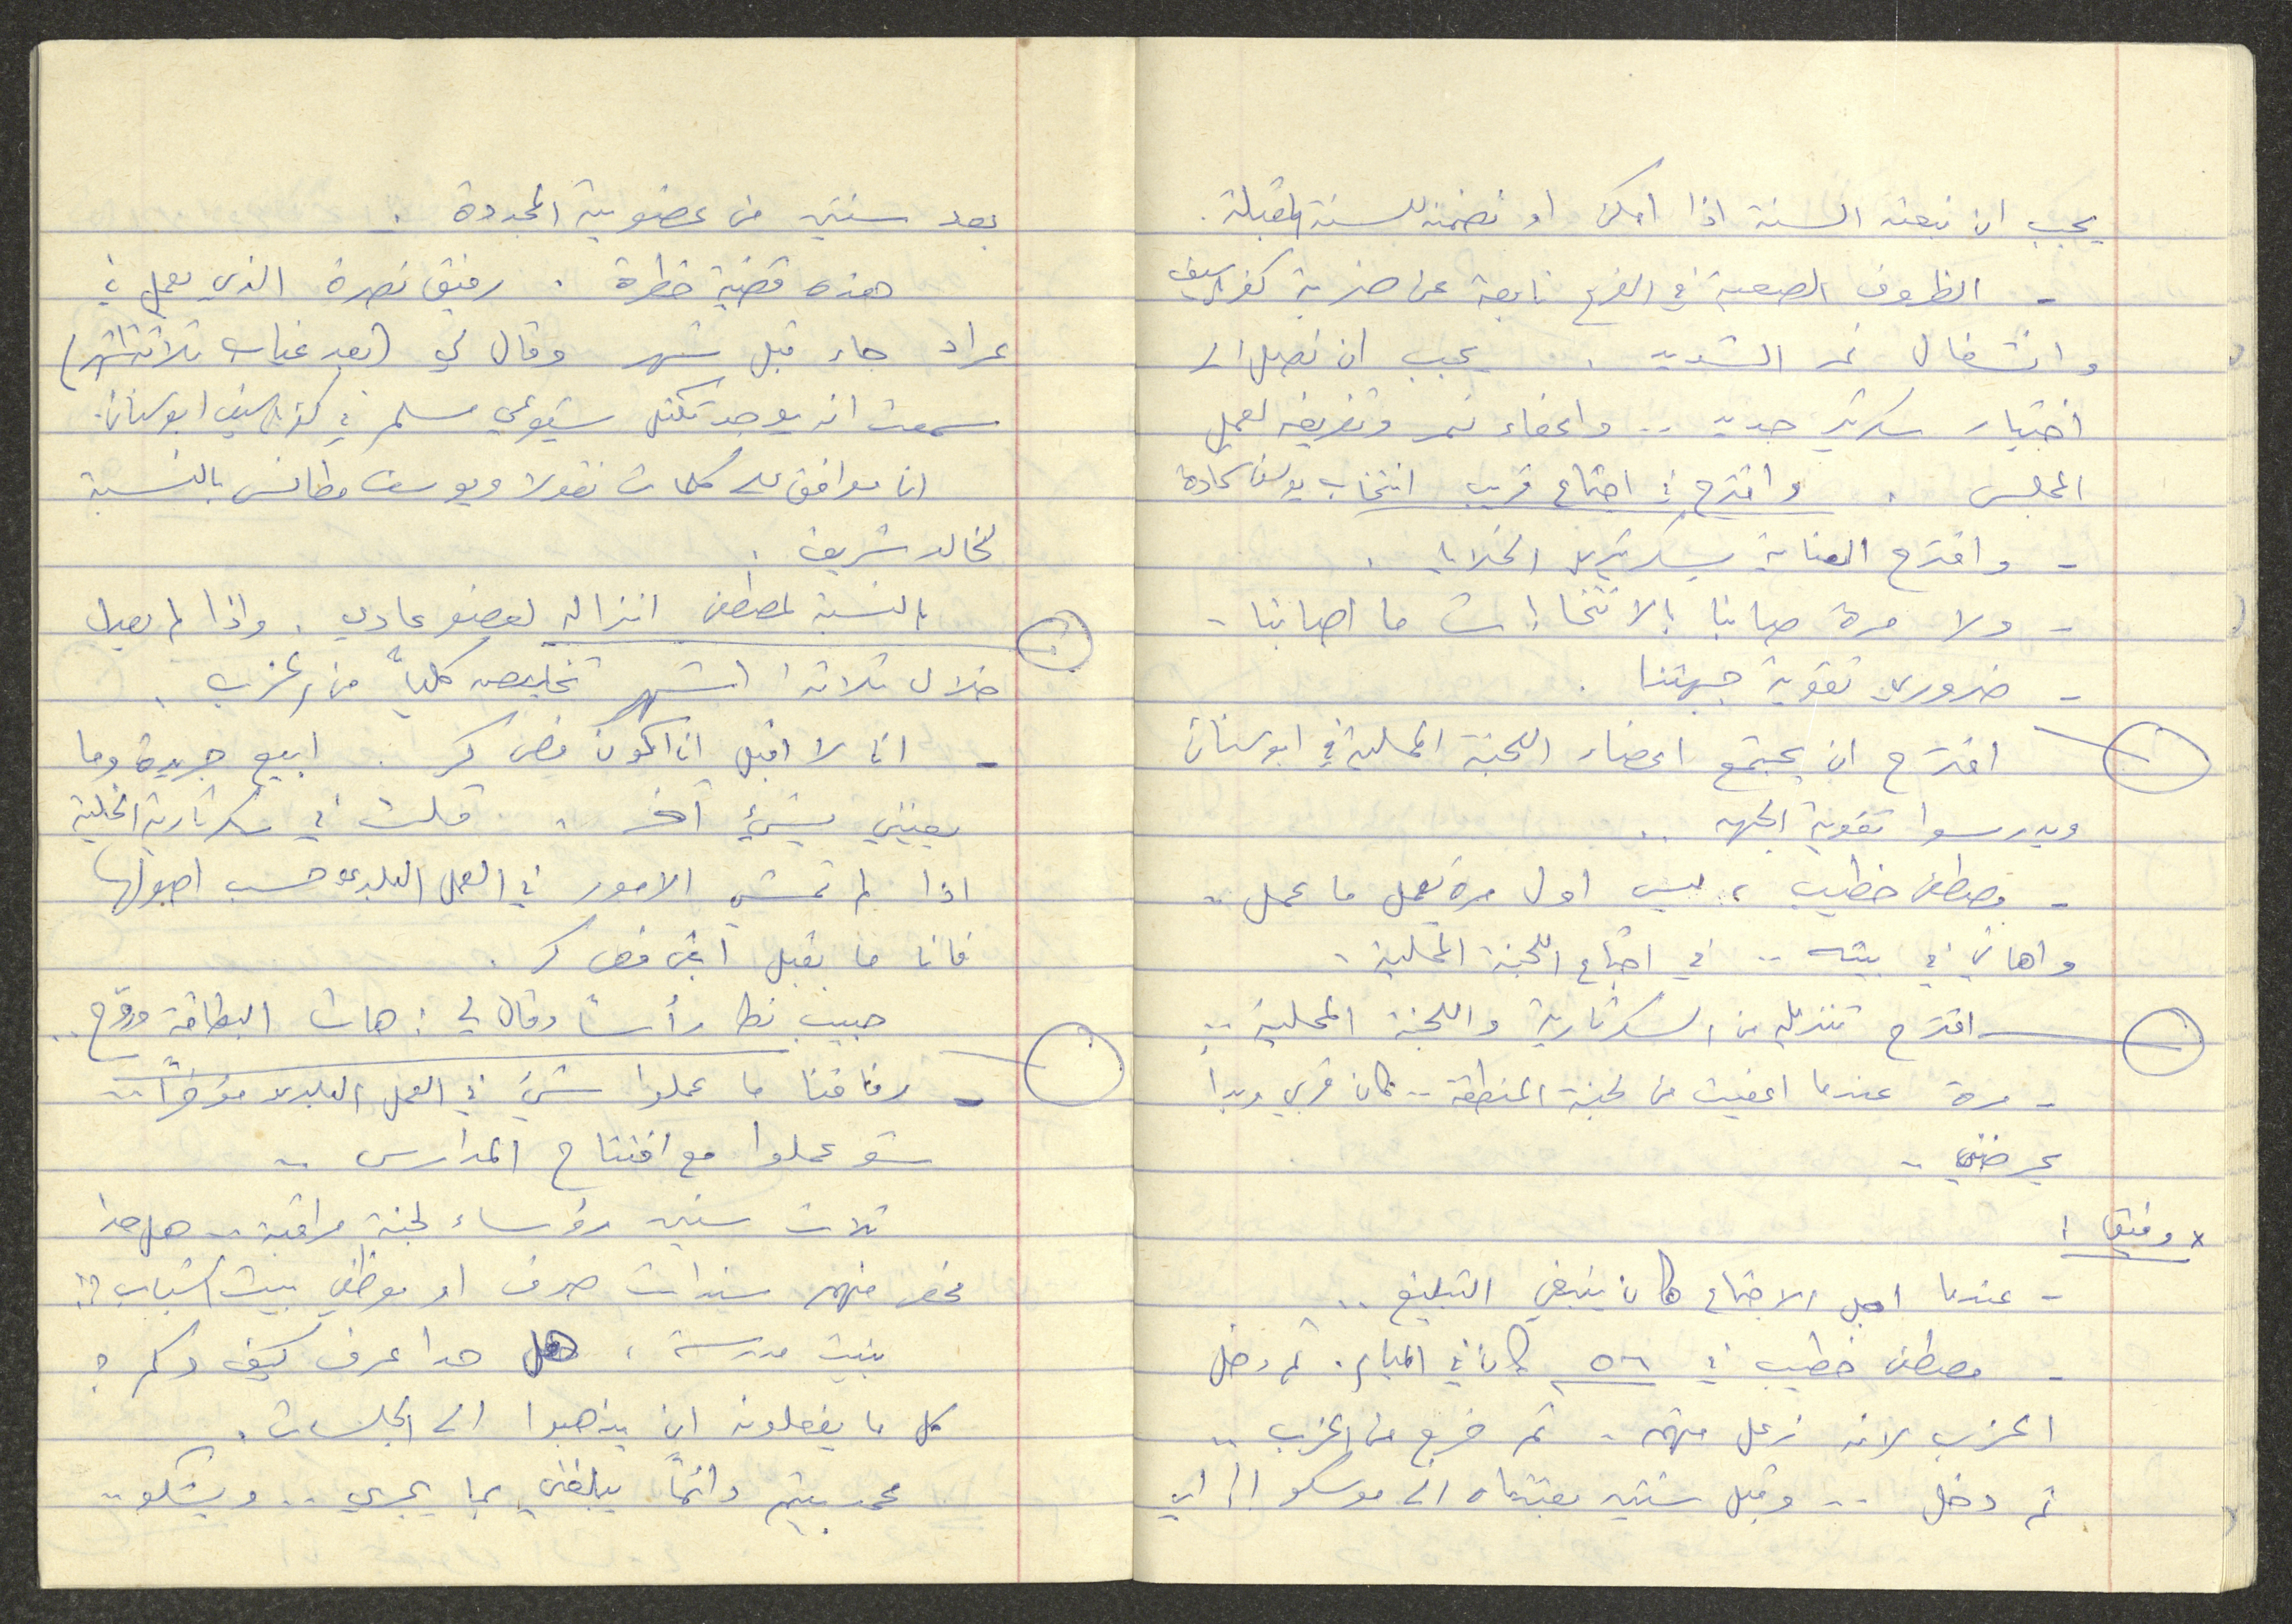 يجب ان نبعته السنة اذا امكن او نضمنه للسنة المقبلة.
- الظروف الصعبة في الفرع نابعة عن ضربة كفرياسيف
وانشغال نمر الشديد. يجب ان نصل الى
اختيار سكرتير جديد .. واعفاء نمر وتفريغه لعمل
المجلس. واقترح في اجتماع قريب انتخاب يوسف شحادة
- واقترح العناية بسكرتيري الخلايا.
- ولا مرة صابنا بالانتخابات ما اصابنا -
- ضروري تقوية جبهتنا.
اقترح ان يجتمع اعضاء اللجنة المحلية في ابوسنان
ويدرسوا تقوية الجبهه ..
- مصطفى خطيب، ليس اول مرة يعمل ما عمل ..
واهاني في بيته .. في اجتماع اللجنة المحلية.
اقترح تنزيله من السكرتارية واللجنة المحلية ..
- مرة عندما اعفيت من لجنة المنطقة .. كان قربي وبدأ
يحرضني ..
× وفيق:
- عندما اجل الاجتماع كان ينبغي التبليغ ..
- مصطفى خطيب في ٥٦ كان في المبام. ثم دخل
الحزب لانه زعل منهم. ثم خرج من الحزب ..
ثم دخل .. وقبل سنتين بعتناه الى موسكو!! اي
بعد سنتين من عضويته المجددة.
هذه قضية خطرة. رفيق نصرة الذي يعمل في
عراد جاء قبل شهر وقال لي (بعد غياب ثلاثة اشهر)
سمعت انه يوجد تكتل شيوعي مسلم في كفرياسيف ابوسنان.
انا موافق على كلمات نقولا ويوسف مطانس بالنسبة
لخالد شريف.
بالنسبة لمصطفى انزاله لعضو عادي. واذا لم يعمل
خلال ثلاثة اشهر تخليصه كلياً من الحزب.
- انا لا اقبل ان اكون فيش كر. ابيع جريدة وما
يعنيني بشيء آخر. قلت في سكرتارية الخلية
اذا لم تمشي الامور في العمل البلدي حسب اصولها
فانا ما بقبل ابقى فيش كر.
حبيب نط رأساً وقال لي: هات البطاقة وروّح ..
- رفاقنا ما عملوا شيء في العمل البلدي مؤخراً ..
شو عملوا مع افتتاح المدارس ..
ثلاث سنين رؤساء لجنة مراقبة .. هل حدا
منهم سندات صرف او موظفي بيت الشباب؟!
بنيت مدرسة، هل حدا عرف كيف وكم؟
كل ما يفعلونه ان يذهبوا الى الجلسات.
محمد دائماً يبلغني بما يجري .. ويشكو ..